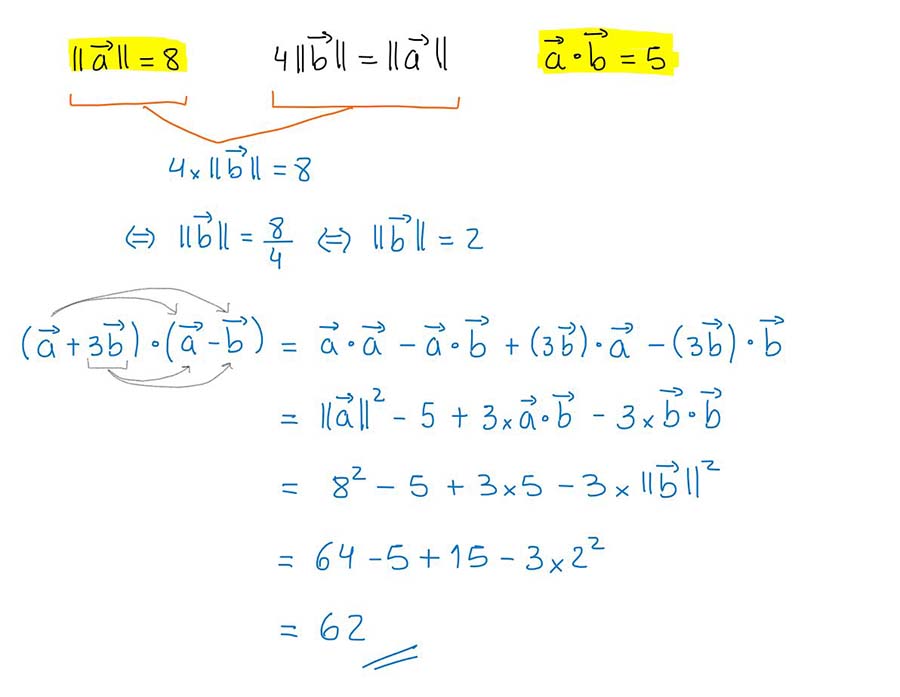 ||a⃗|| = 8   4||b⃗|| = ||a⃗||   a⃗ • b⃗ = 5
4 × ||b⃗|| = 8
⇔ ||b⃗|| = 8/4 ⇔ ||b⃗|| = 2
(a⃗ + 3b⃗) • (a⃗ − b⃗) = a⃗ • a⃗ − a⃗ • b⃗ + (3b⃗) • a⃗ − (3b⃗) • b⃗
= ||a⃗||² − 5 + 3 × a⃗ • b⃗ − 3 × b⃗ • b⃗
= 8² − 5 + 3 × 5 − 3 × ||b⃗||²
= 64 − 5 + 15 − 3 × 2²
= 62